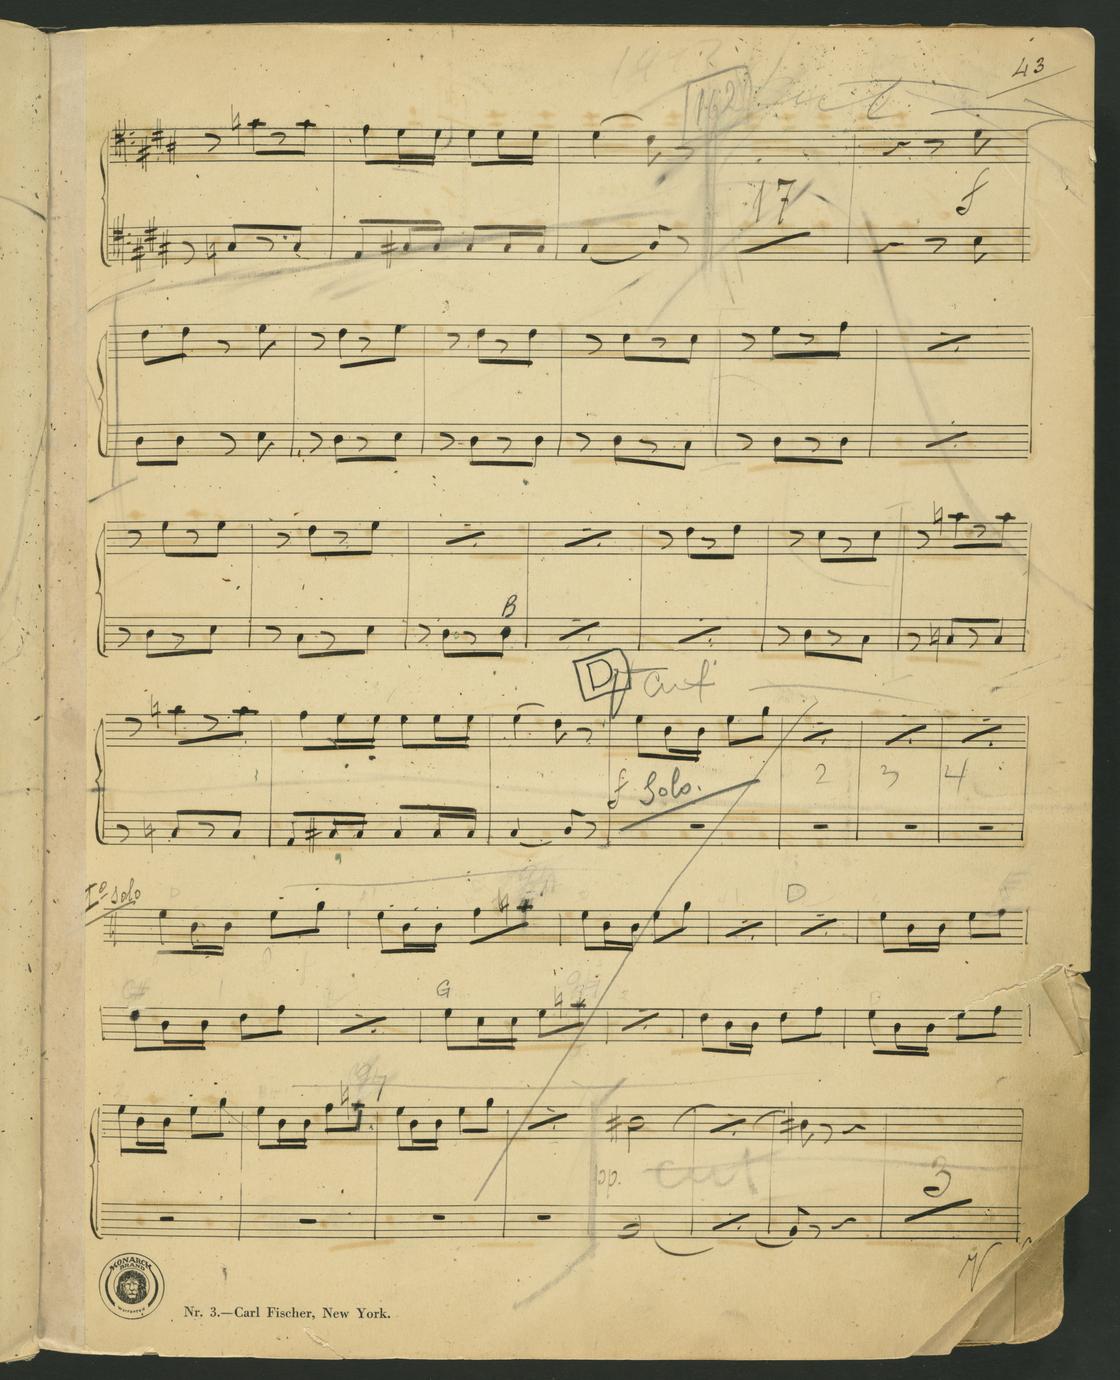 43
17
f
f
B
D cut
f Solo.
2 3 4
Iº Solo
D
G
pp. cut
3
MONARCH BRAND
Warranted
Nr. 3.—Carl Fischer, New York.